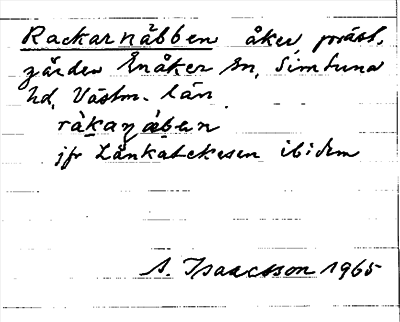 Rackarnäbben åker, präst-
gården Enåker sn, Simtuna
hd, Västm. län
ràkanǽben
jfr Lånkabckesen ibidem
A. Isaacsson 1965